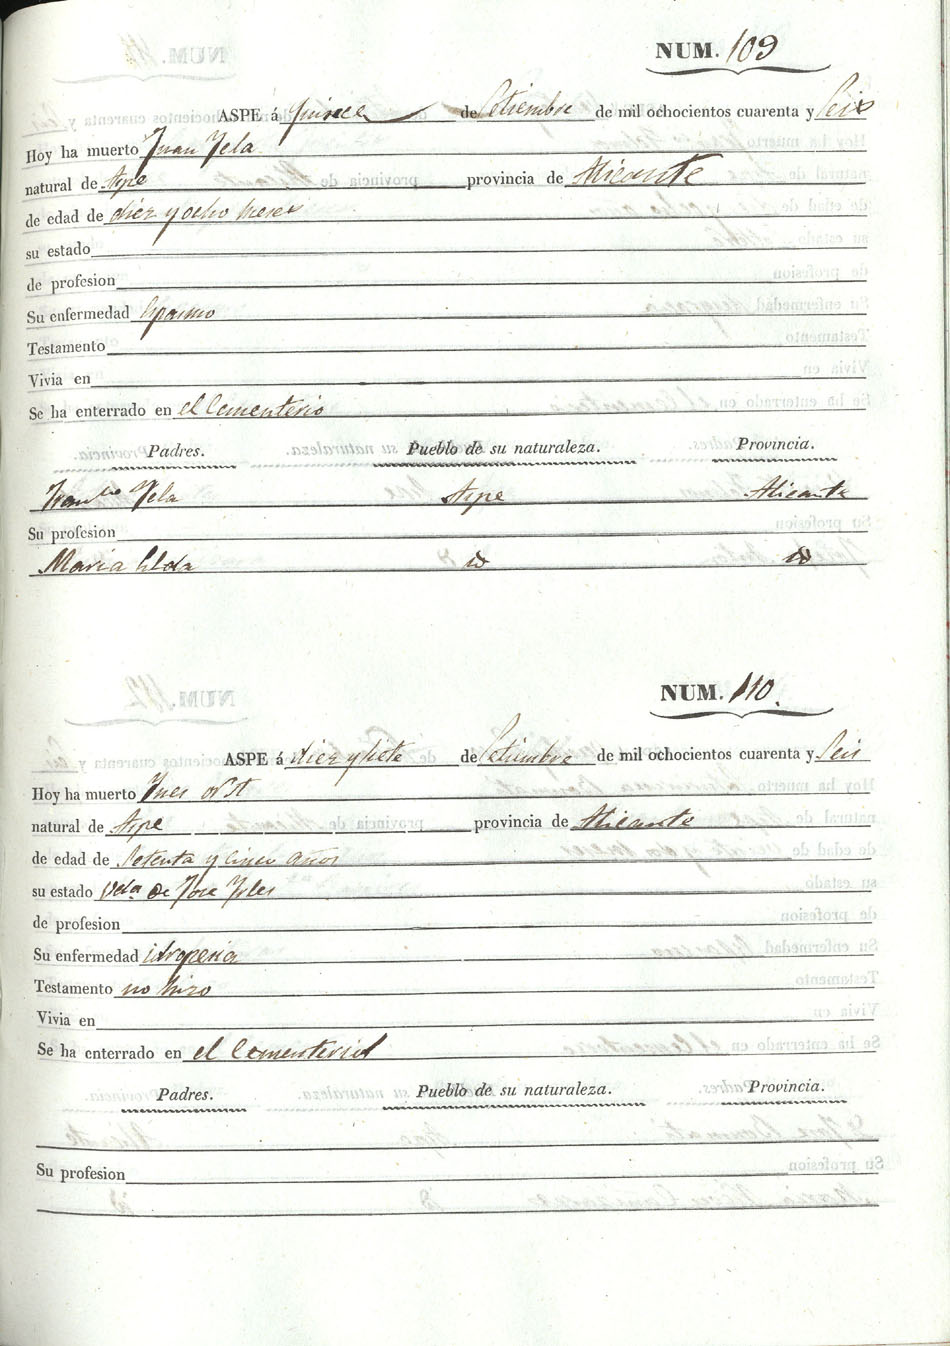 NUM. 109
ASPE á quince de Setiembre de mil ochocientos cuarenta y Seis
Hoy ha muerto Juan Yela
natural de Aspe provincia de Alicante
de edad de diez y ocho meses
su estado
de profesion
Su enfermedad Espasmo
Testamento
Vivia en
Se ha enterrado en el Cementerio
Padres. Pueblo de su naturaleza. Provincia.
Yela Aspe Alicante
Su profesion
Maria id id
NUM. 110.
ASPE á diez y siete de Setiembre de mil ochocientos cuarenta y Seis
Hoy ha muerto Ynes
natural de Aspe provincia de Alicante
de edad de Setenta y cinco años
su estado Vda. de Jose
de profesion
Su enfermedad idropesia
Testamento no hizo
Vivia en
Se ha enterrado en el Cementerio
Padres. Pueblo de su naturaleza. Provincia.
Su profesion